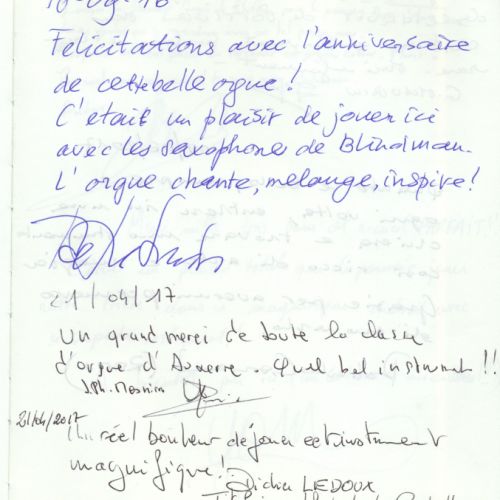 Felicitations avec l'anniversaire
de cette belle orgue!
C'etait un plaisir de jouer ici
avec les saxophones de Blindman.
L'orgue chante, melange, inspire!
21/04/17
Un grand merci de toute la classe
d'orgue d'Auxerre. Quel bel instrument!!
J.Ph. Mesnier
21/04/2017
Un réel bonheur de jouer cet instrument
magnifique!
Didier LEDOUX